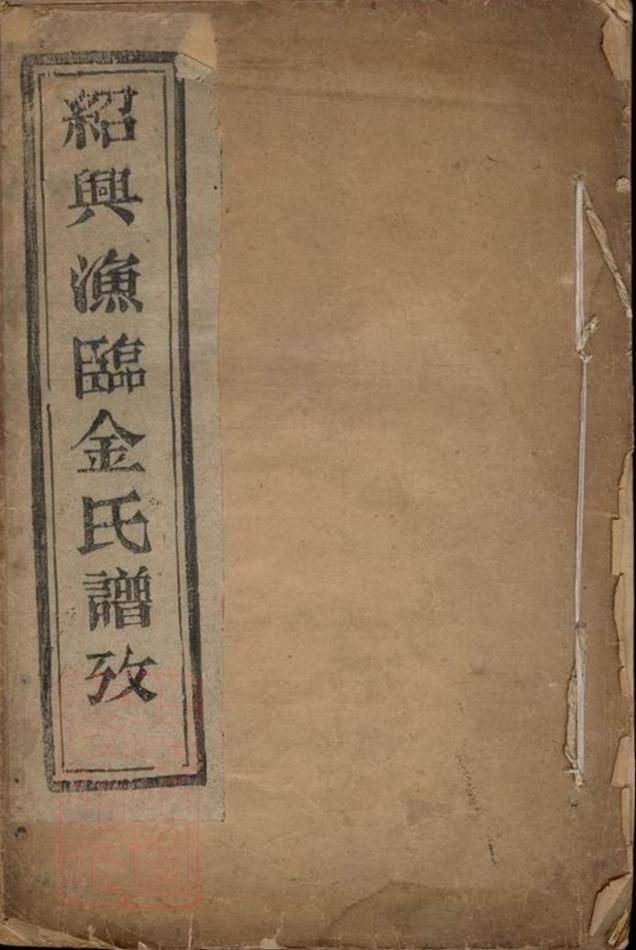 紹興漁臨金氏譜攷